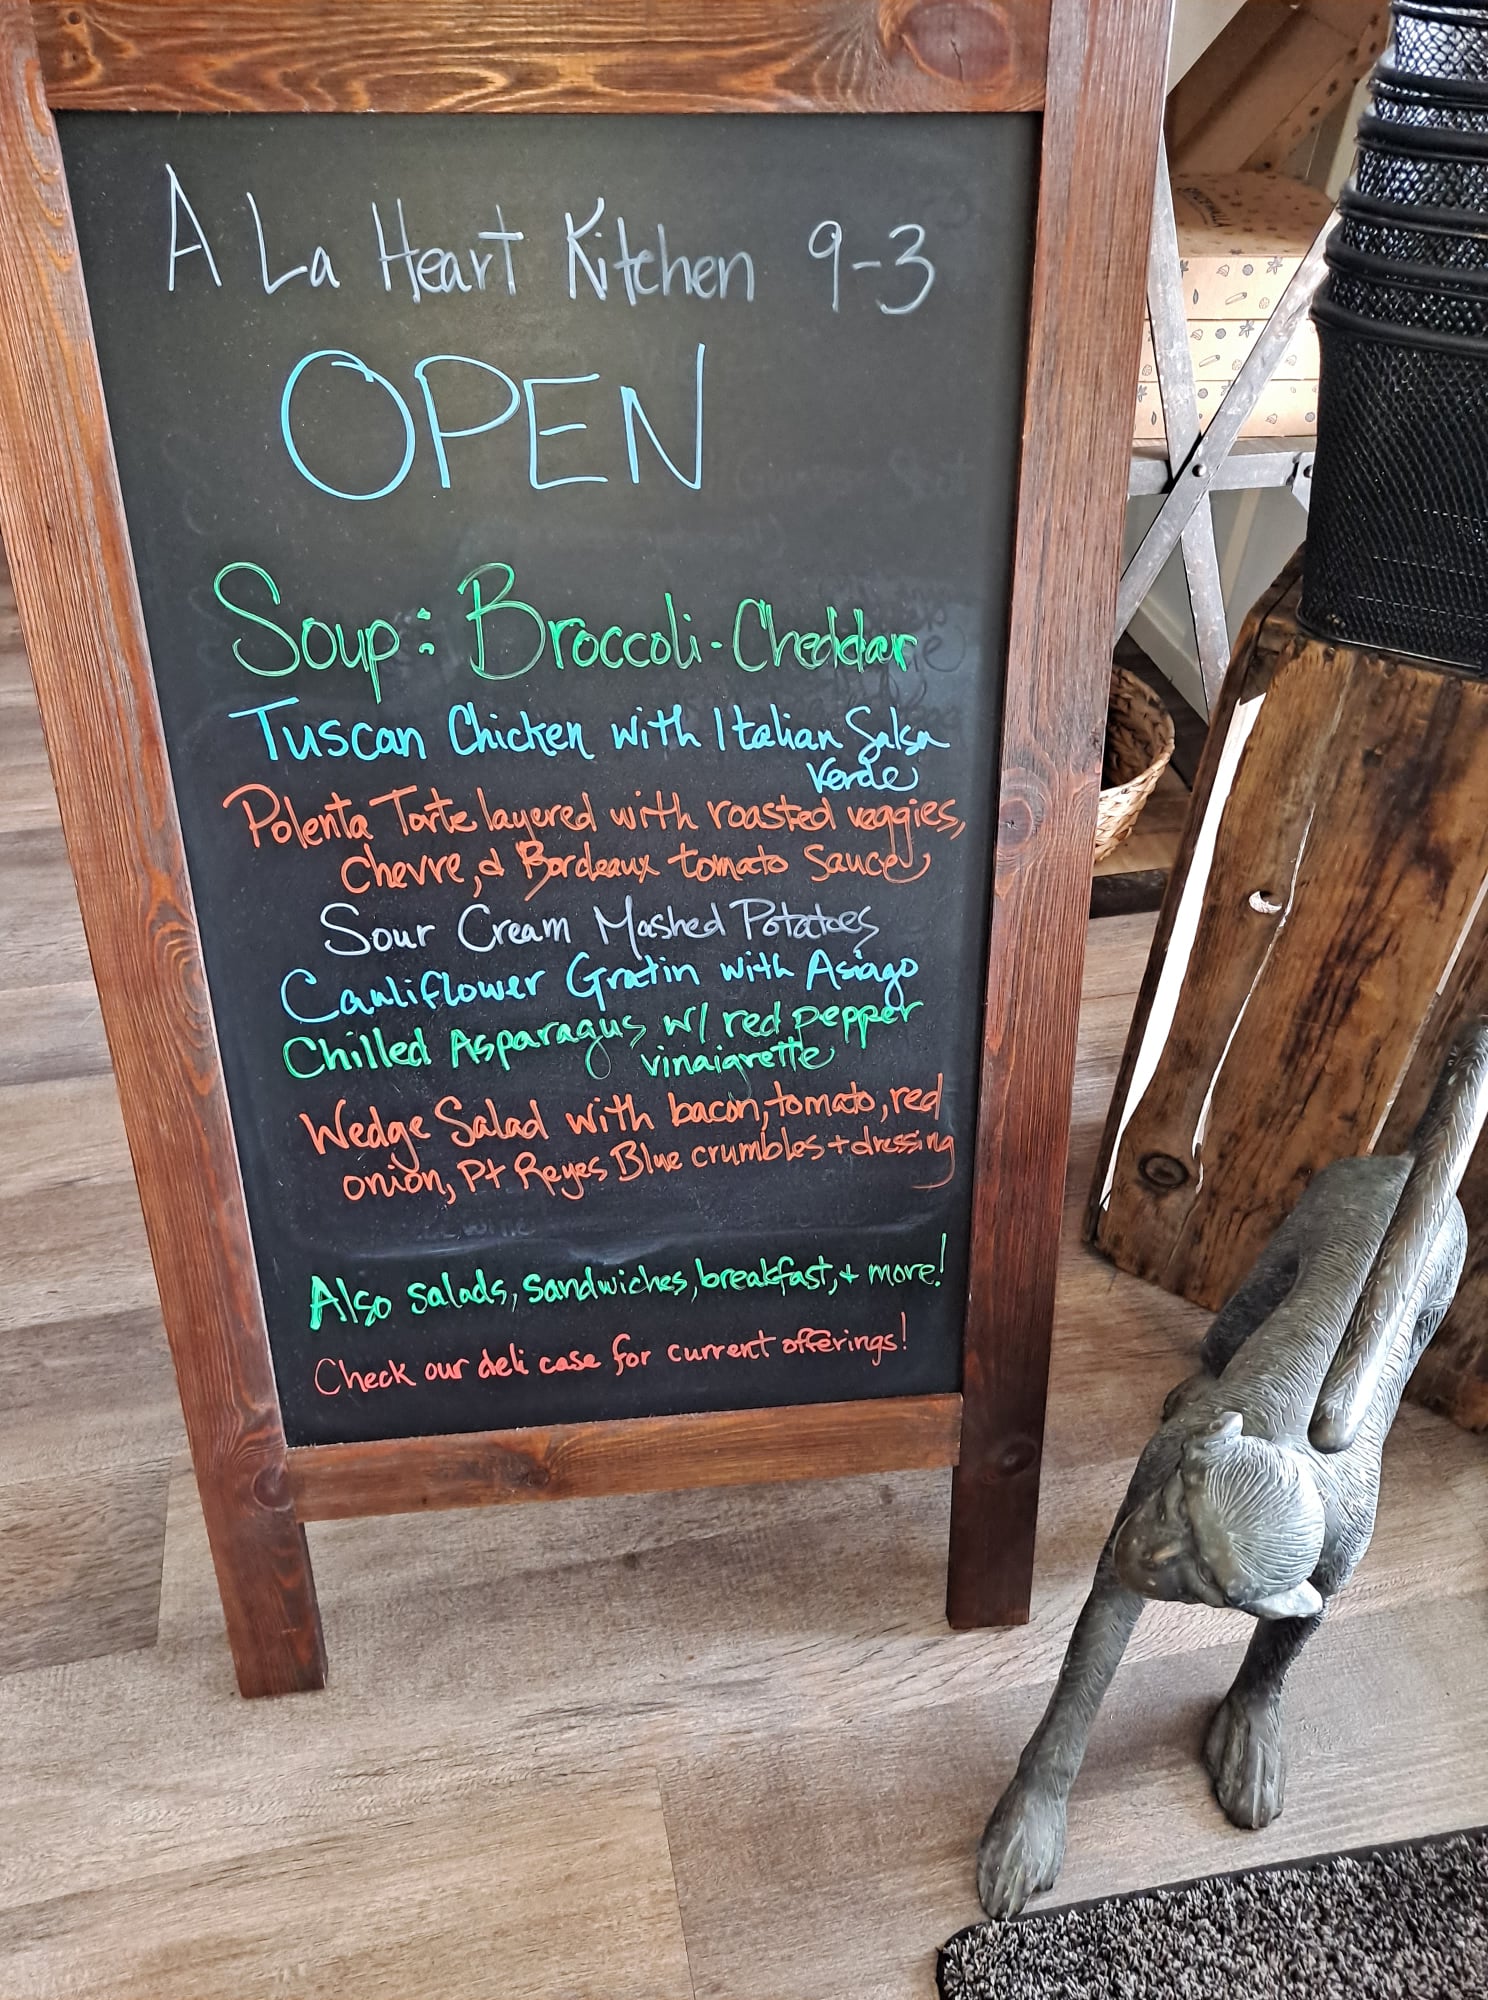 A La Heart Kitchen 9-3
OPEN
Soup: Broccoli-Cheddar
Tuscan Chicken with Italian Salsa
Verde
Polenta Torte layered with roasted veggies,
Chevre, & Bordeaux tomato Sauce
Sour Cream Mashed Potatoes
Cauliflower Gratin with Asiago
Chilled Asparagus w/ red pepper
vinaigrette
Wedge Salad with bacon, tomato, red
onion, Pt Reyes Blue crumbles + dressing
Also salads, sandwiches, breakfast, + more!
Check our deli case for current offerings!